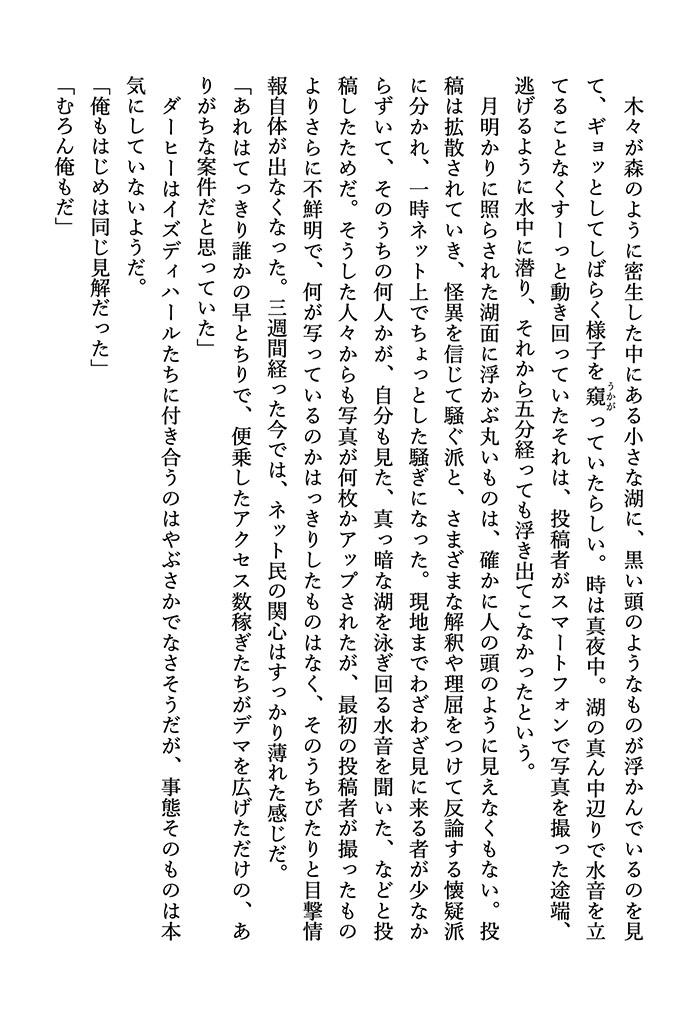 木々が森のように密生した中にある小さな湖に、黒い頭のようなものが浮かんでいるのを見
て、ギョッとしてしばらく様子を窺っていたらしい。時は真夜中。湖の真ん中辺りで水音を立
てることなくすーっと動き回っていたそれは、投稿者がスマートフォンで写真を撮った途端、
逃げるように水中に潜り、それから五分経っても浮き出てこなかったという。
　月明かりに照らされた湖面に浮かぶ丸いものは、確かに人の頭のように見えなくもない。投
稿は拡散されていき、怪異を信じて騒ぐ派と、さまざまな解釈や理屈をつけて反論する懐疑派
に分かれ、一時ネット上でちょっとした騒ぎになった。現地までわざわざ見に来る者が少なか
らずいて、そのうちの何人かが、自分も見た、真っ暗な湖を泳ぎ回る水音を聞いた、などと投
稿したためだ。そうした人々からも写真が何枚かアップされたが、最初の投稿者が撮ったもの
よりさらに不鮮明で、何が写っているのかはっきりしたものはなく、そのうちぴたりと目撃情
報自体が出なくなった。三週間経った今では、ネット民の関心はすっかり薄れた感じだ。
「あれはてっきり誰かの早とちりで、便乗したアクセス数稼ぎたちがデマを広げただけの、あ
りがちな案件だと思っていた」
　ダーヒーはイズディハールたちに付き合うのはやぶさかでなさそうだが、事態そのものは本
気にしていないようだ。
「俺もはじめは同じ見解だった」
「むろん俺もだ」
うかが